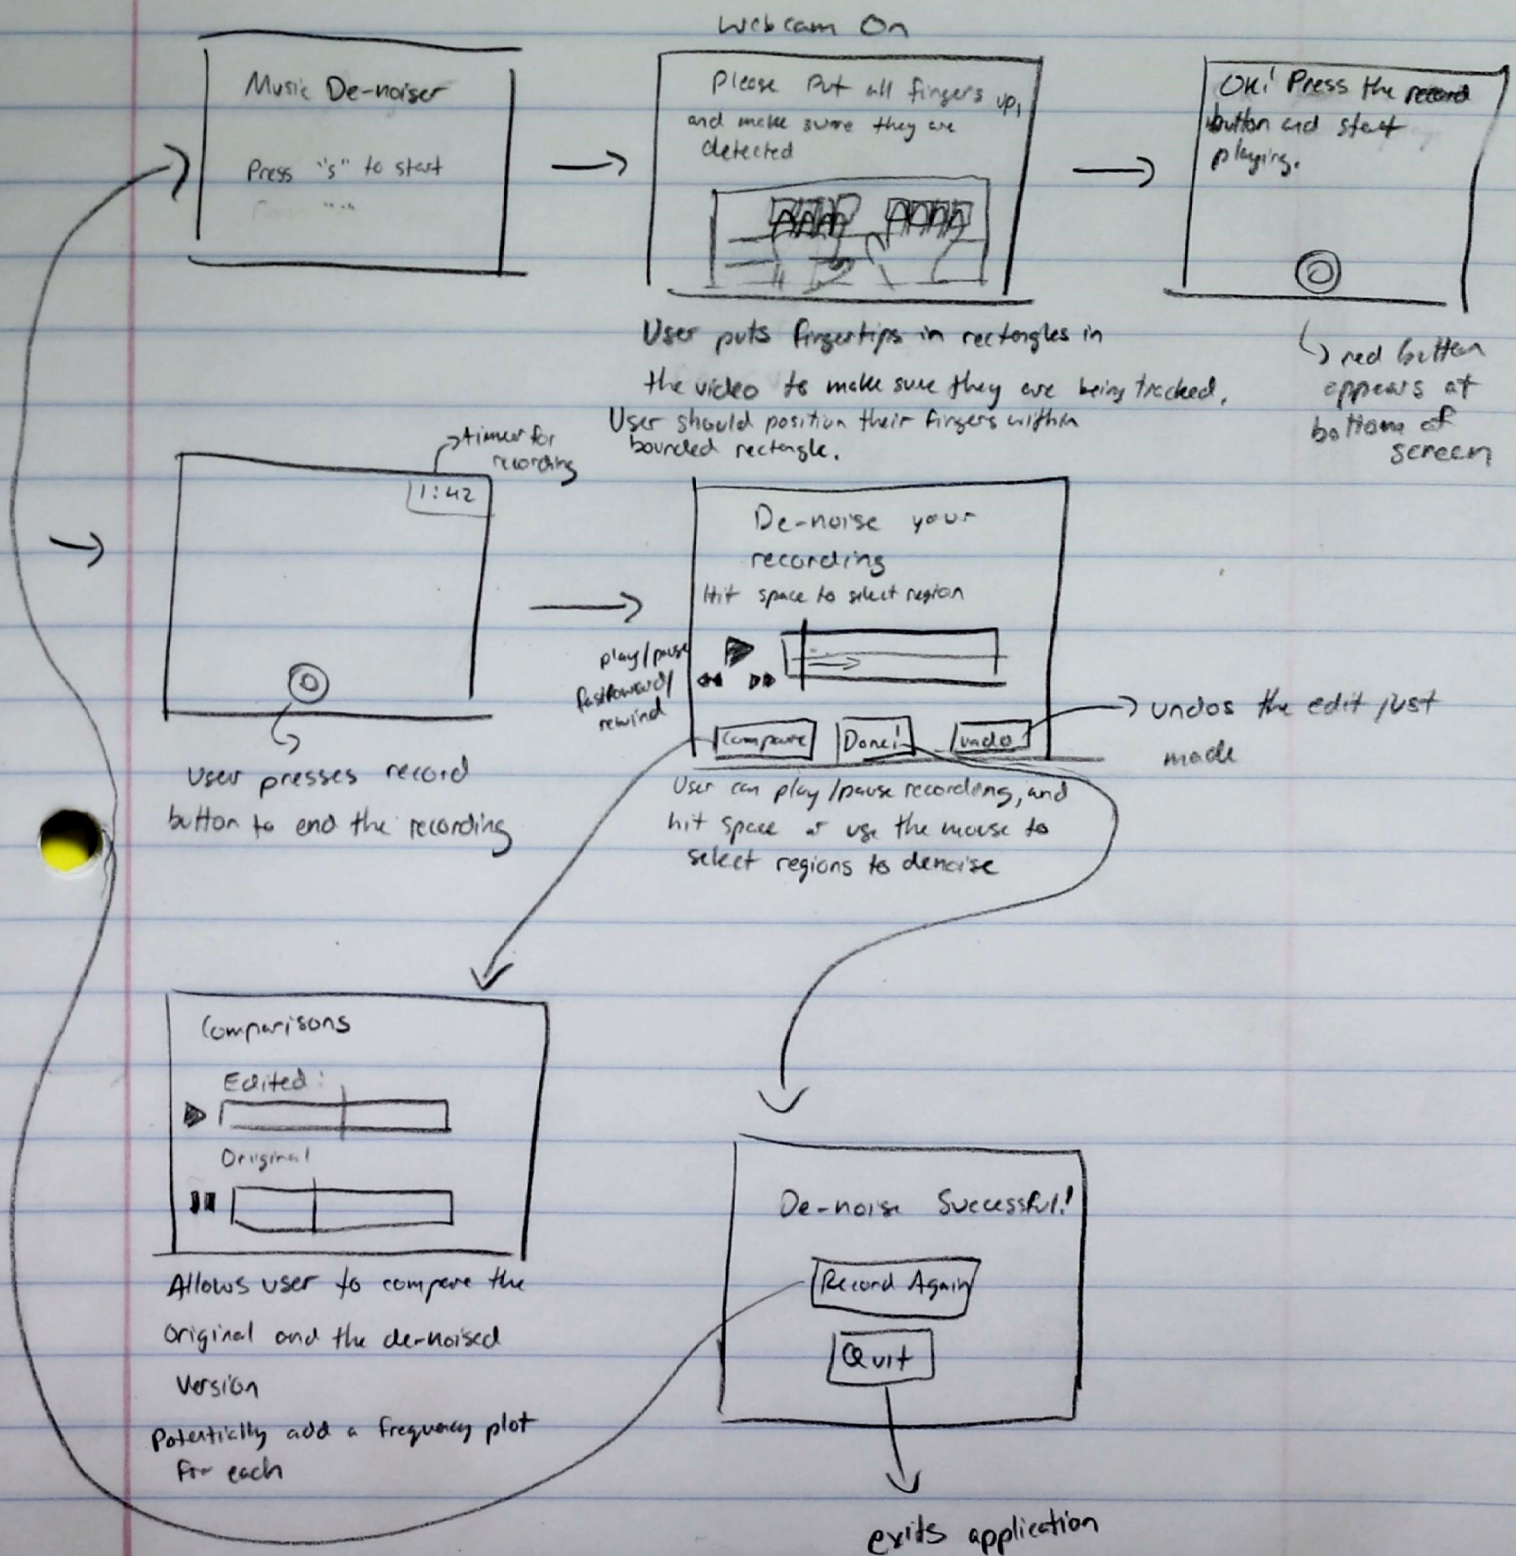 Webcam On
Music De-noiser
Press "s" to start
Please Put all fingers up,
and make sure they are
detected
OK! Press the record
button and start
playing.
User puts fingertips in rectangles in
the video to make sure they are being tracked.
User should position their fingers within
bounded rectangle.
red button
appears at
bottom of
screen
timer for
recording
1:42
User presses record
button to end the recording
De-noise your
recording
Hit space to select region
play/pause
fastforward/
rewind
Compare
Done!
undo
undos the edit just
made
User can play/pause recording, and
hit space or use the mouse to
select regions to denoise
Comparisons
Edited:
Original
Allows user to compare the
original and the de-noised
version
Potentially add a frequency plot
for each
De-noise Successful!
Record Again
Quit
exits application